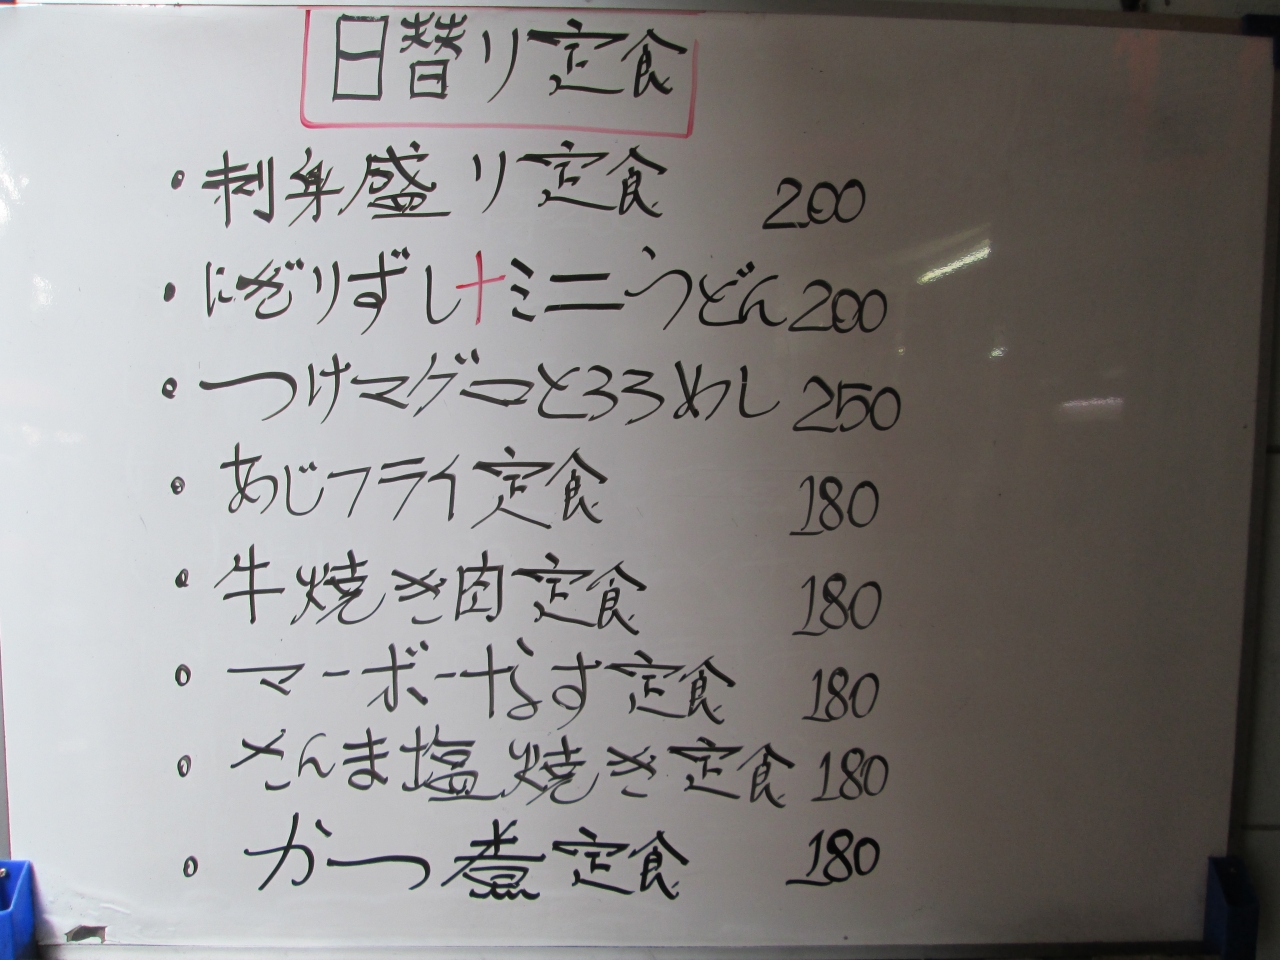 日替り定食
・刺身盛り定食 200
・にぎりずし+ミニうどん 200
・つけマグロとろろめし 250
・あじフライ定食 180
・牛焼き肉定食 180
・マーボーなす定食 180
・さんま塩焼き定食 180
・かつ煮定食 180